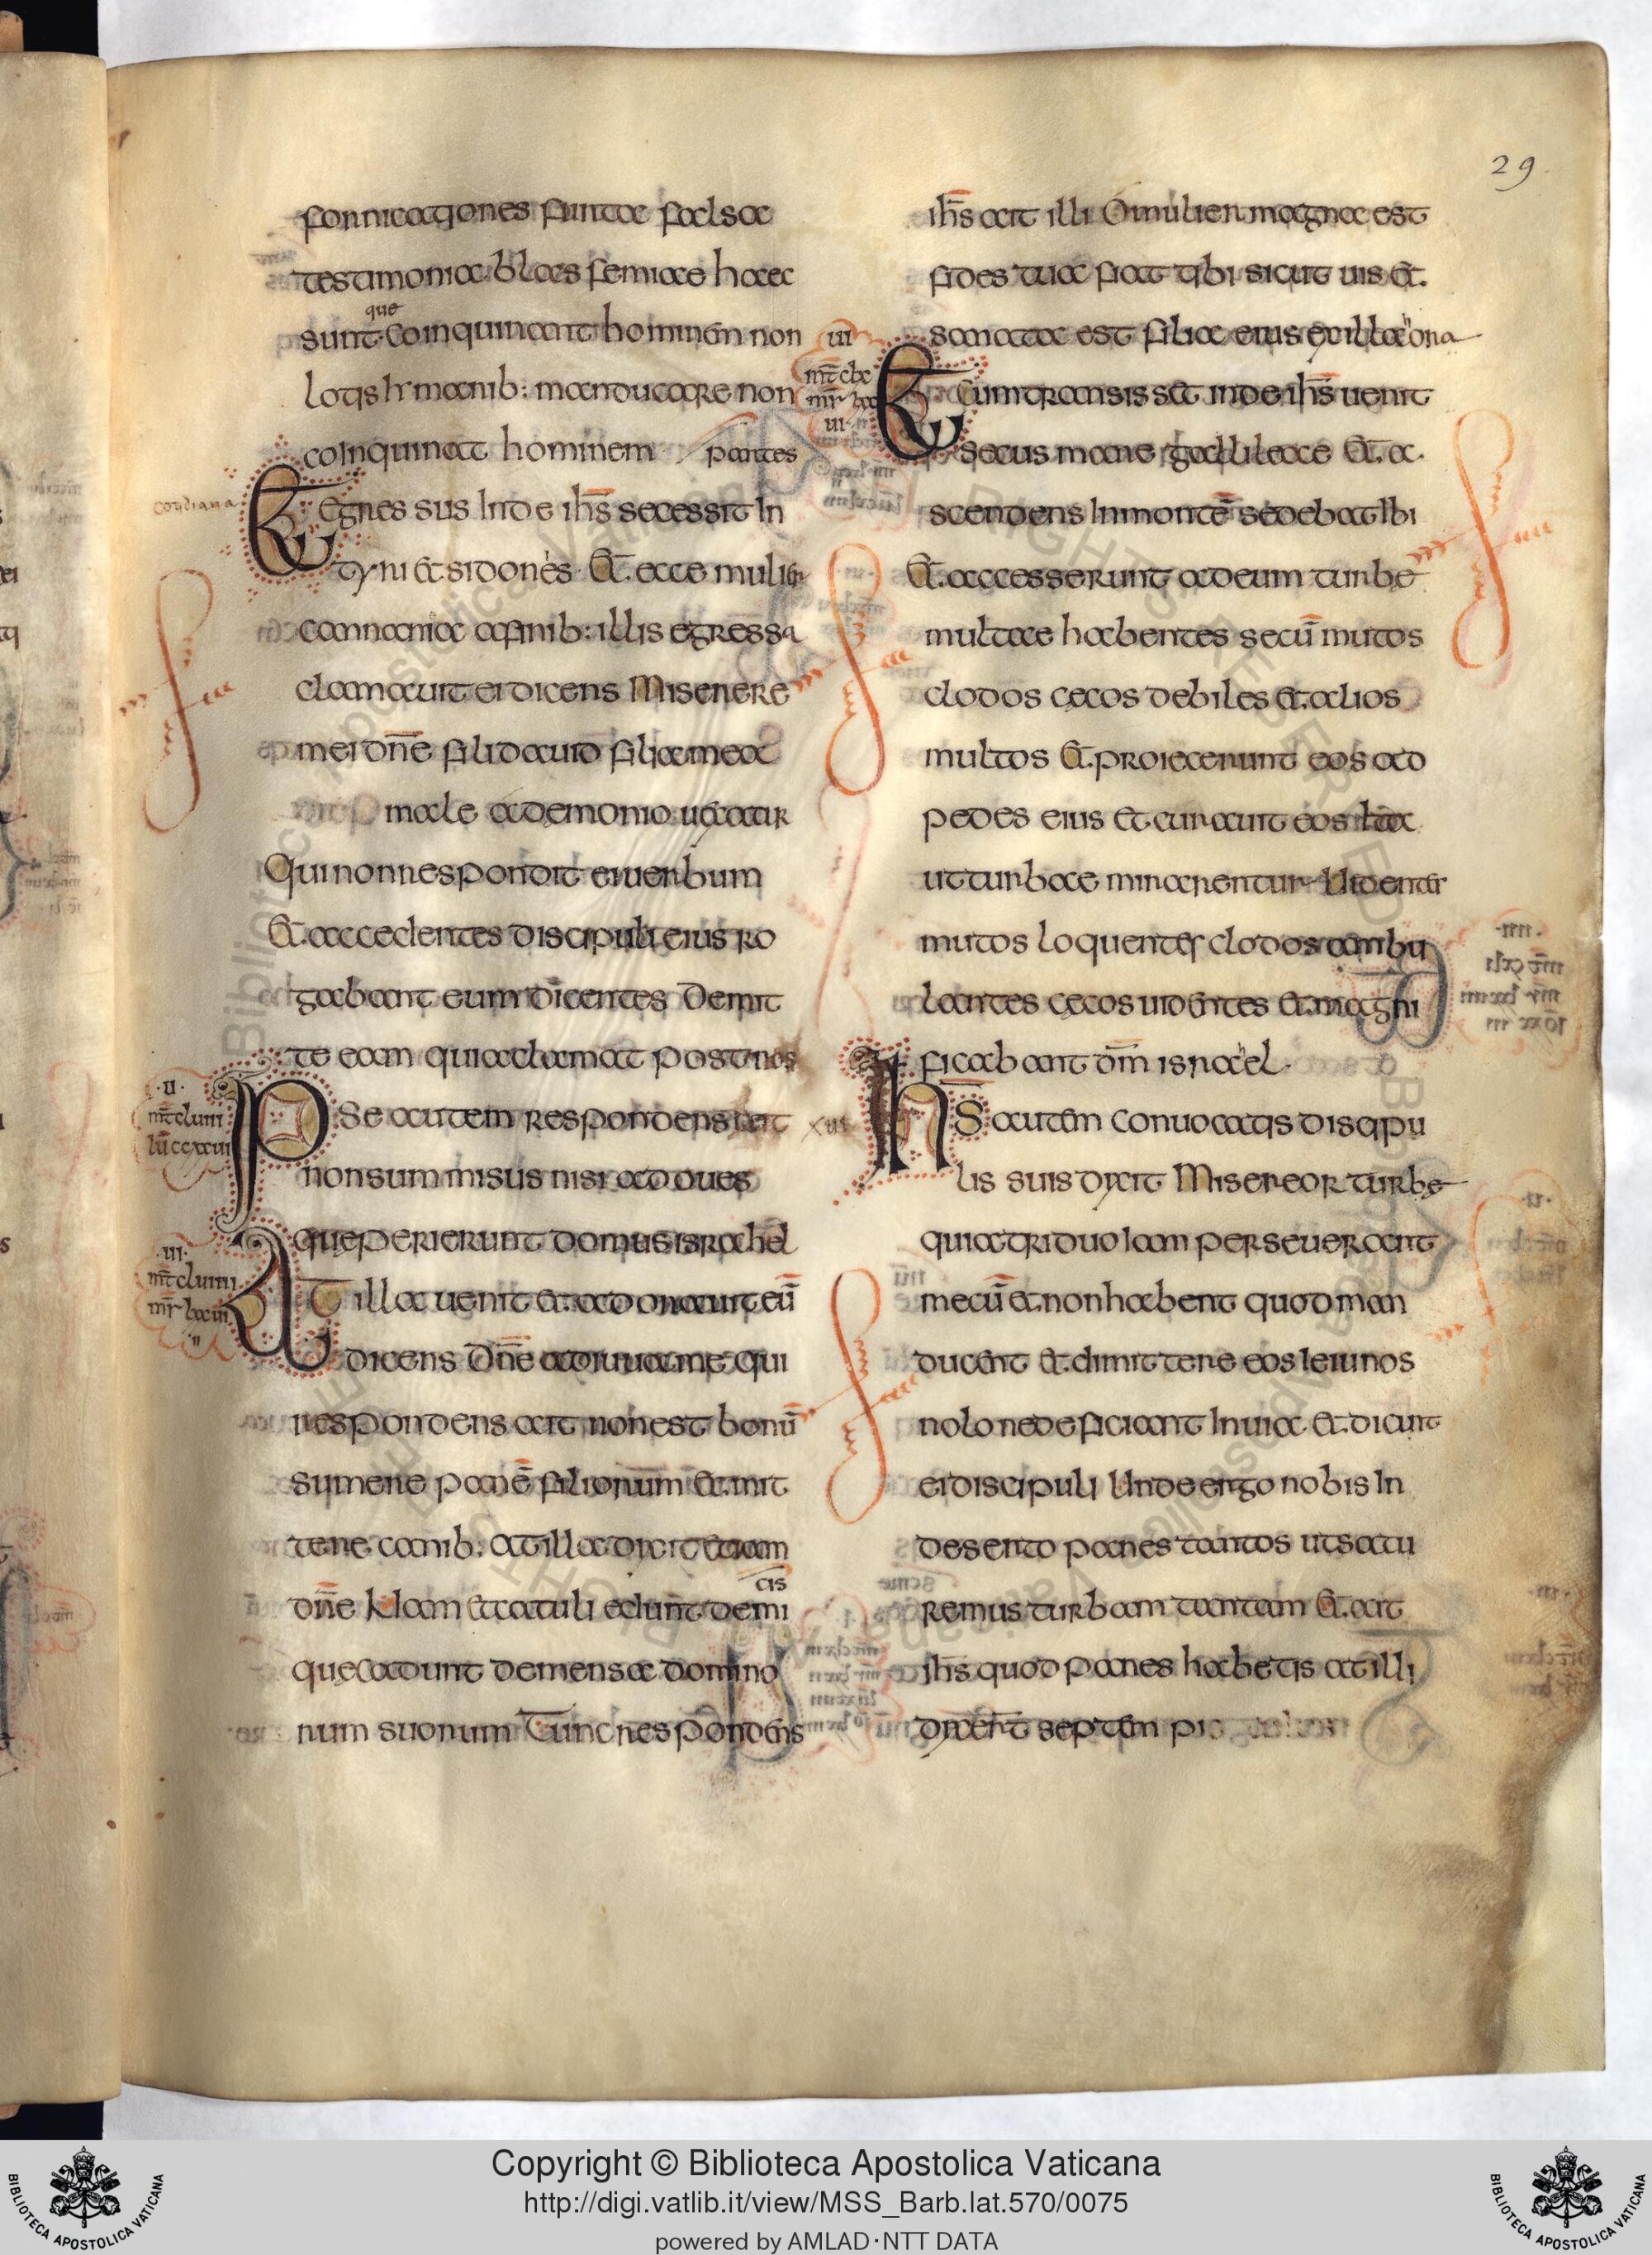 29
fornicationes furta falsa
testimonia blasfemiae haec
que
sunt coinquinant hominem non
lotis hr manib: manducare non
coinquinat hominem partes
Et egressus inde ihs̄ secessit in
tyri et sidonis Et ecce mulier
channania a finib: illis egressa
clamauit ei dicens Miserere
mei dn̄e fili dauid filia mea
male a demonio uexatur
Qui non respondit ei uerbum
Et accedentes discipuli eius ro
gabant eum dicentes Demit
te eam quia clamat post nos
·u·
mt̄ cluiii
Ipse autem respondens ait
non sum misus nisi ad oues
que perierunt domus israhel
·ui·
At illa uenit et adorauit eū
dicens Dn̄e adiuua me qui
respondens ait non est bonū
sumere panē filiorum et mit
tere canib: at illa dixit etiam
cis
dn̄e Nam et catuli edunt de mi
que cadunt de mensa domino
rum suorum Tunc respondens
ihs̄ ait illi O mulier magna est
fides tua fiat tibi sicut uis et
sanata est filia eius ex illa ora
Et cum transisset inde ihs̄ uenit
secus mare galileae et a
scendens in montē sedebat ibi
Et accesserunt ad eum turbe
multae habentes secū mutos
clodos cecos debiles et alios
multos et proiecerunt eos ad
pedes eius et curauit eos ita
ut turbae mirarentur Uidentes
mutos loquentes clodos ambu
lantes cecos uidentes et magni
ficabant dm̄ israel
xui
Ihs autem conuocatis discipu
lis suis dixit Misereor turbe
quia triduo iam perseuerant
mecū et non habent quod man
ducent et dimittere eos ieiunos
nolo ne deficiant in uia et dicunt
ei discipuli Unde ergo nobis in
deserto panes tantos ut satu
remus turbam tantam Et ait
ihs̄ quod panes habetis at illi
dixert̄ septem
Copyright © Biblioteca Apostolica Vaticana
http://digi.vatlib.it/view/MSS_Barb.lat.570/0075
powered by AMLAD·NTT DATA
BIBLIOTECA APOSTOLICA VATICANA
BIBLIOTECA APOSTOLICA VATICANA